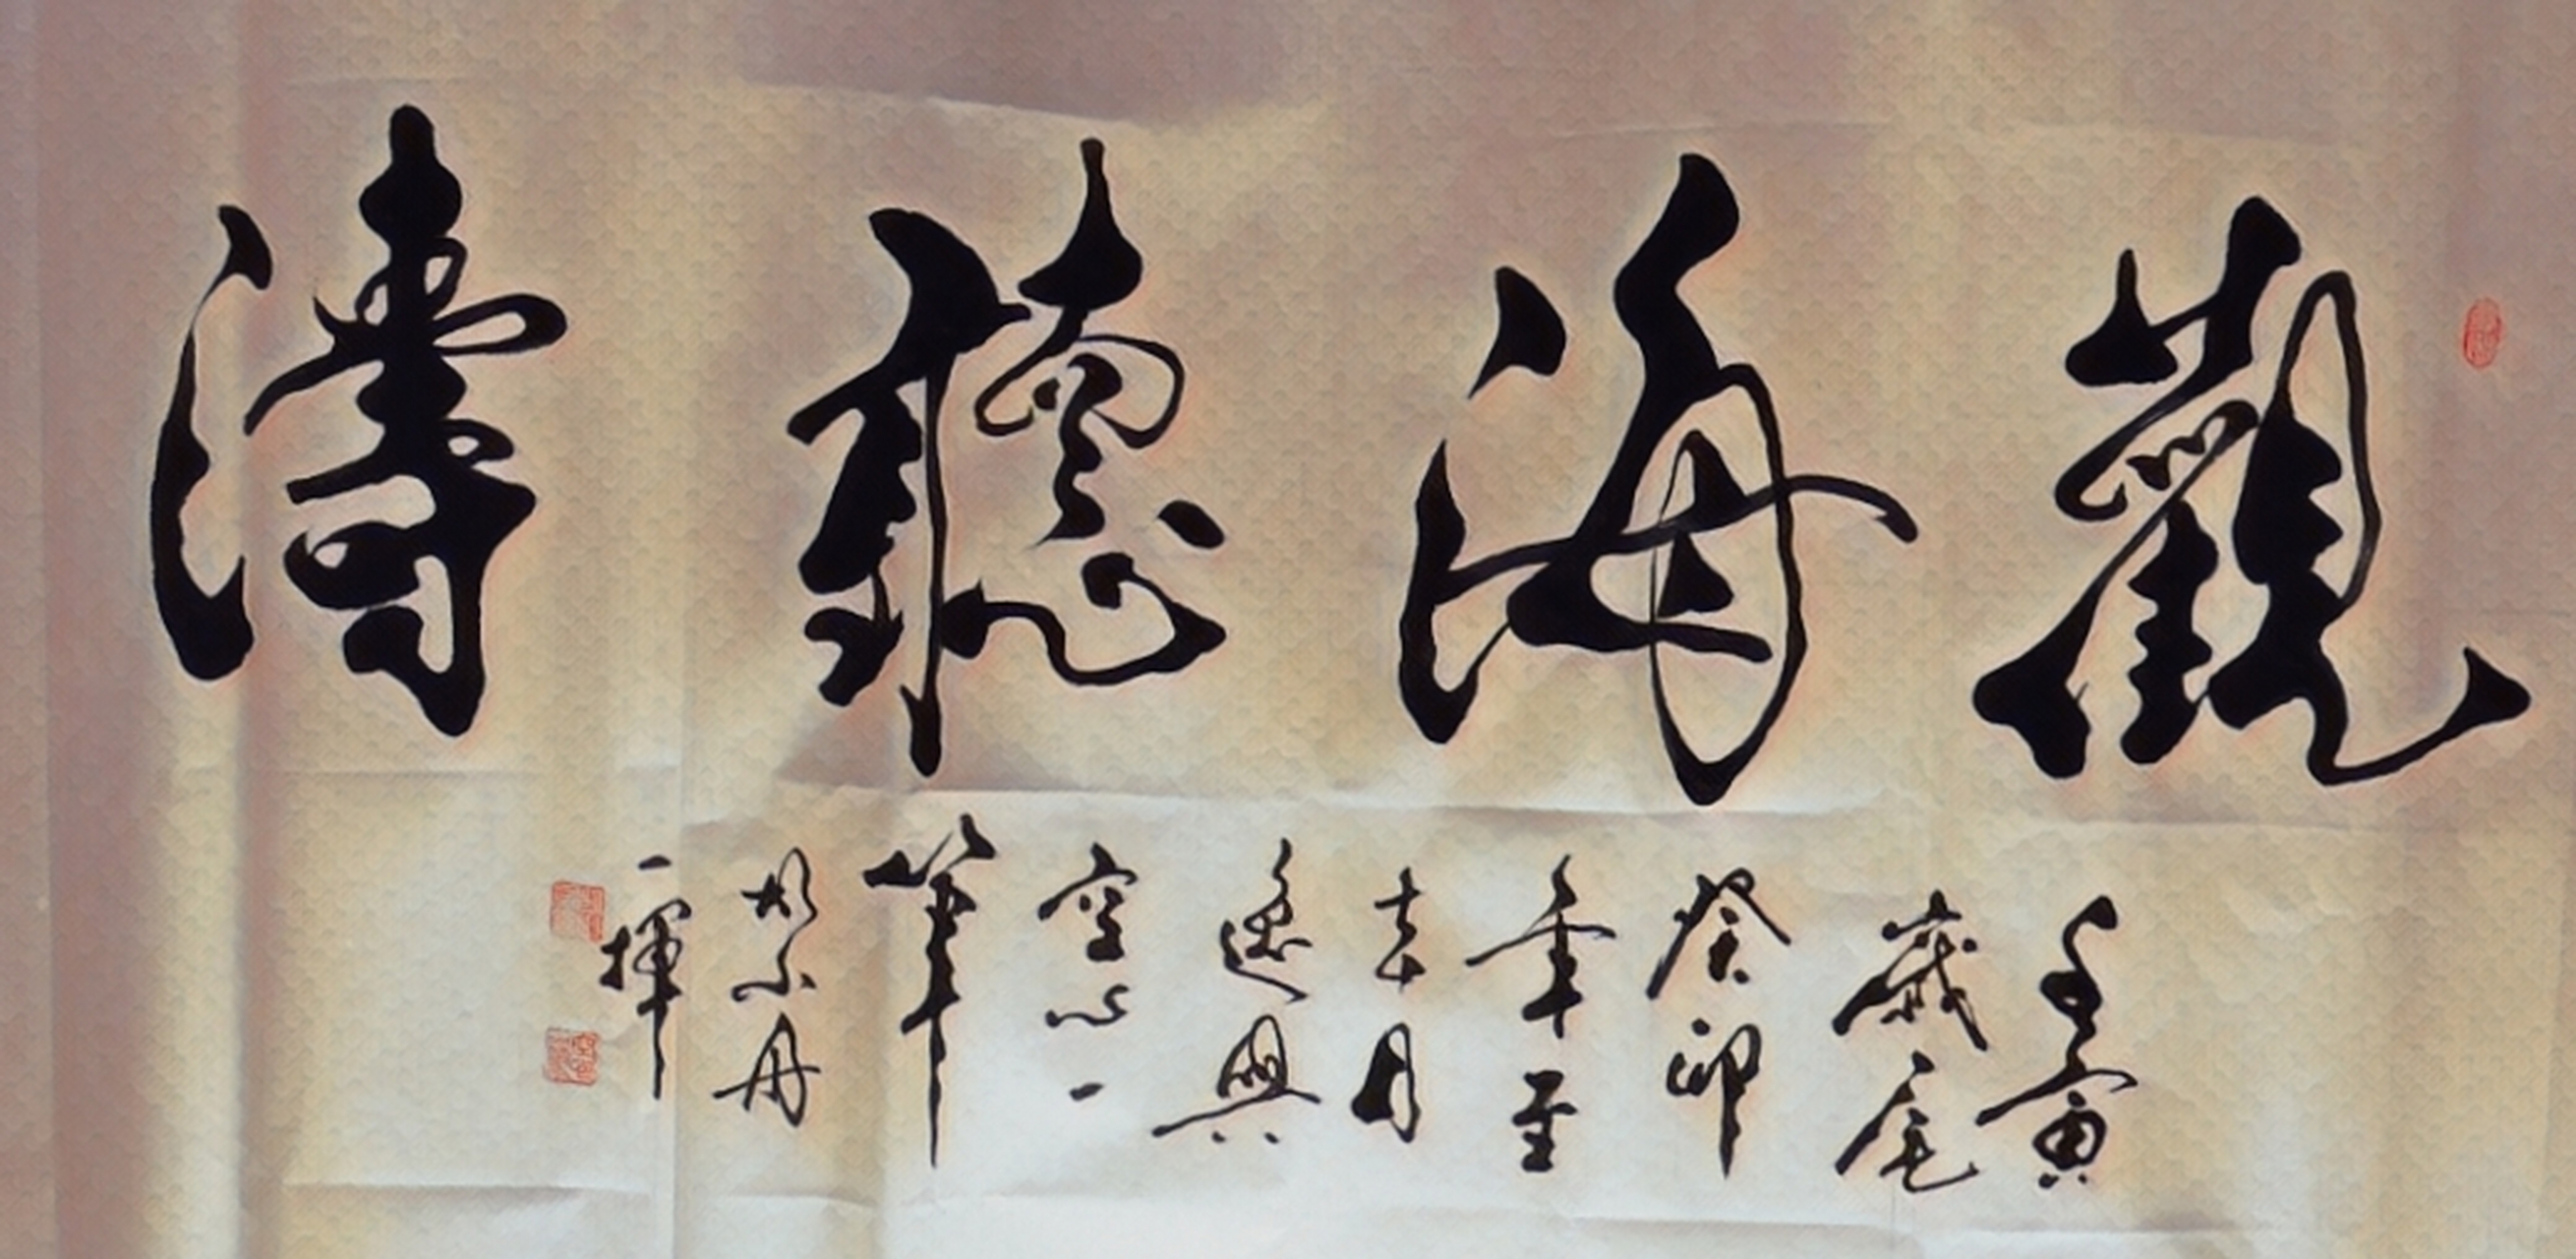 觀海聽濤
壬寅
歲尾
癸卯
年至
吉月
逸興
空心一
筆
胡小丹
一揮